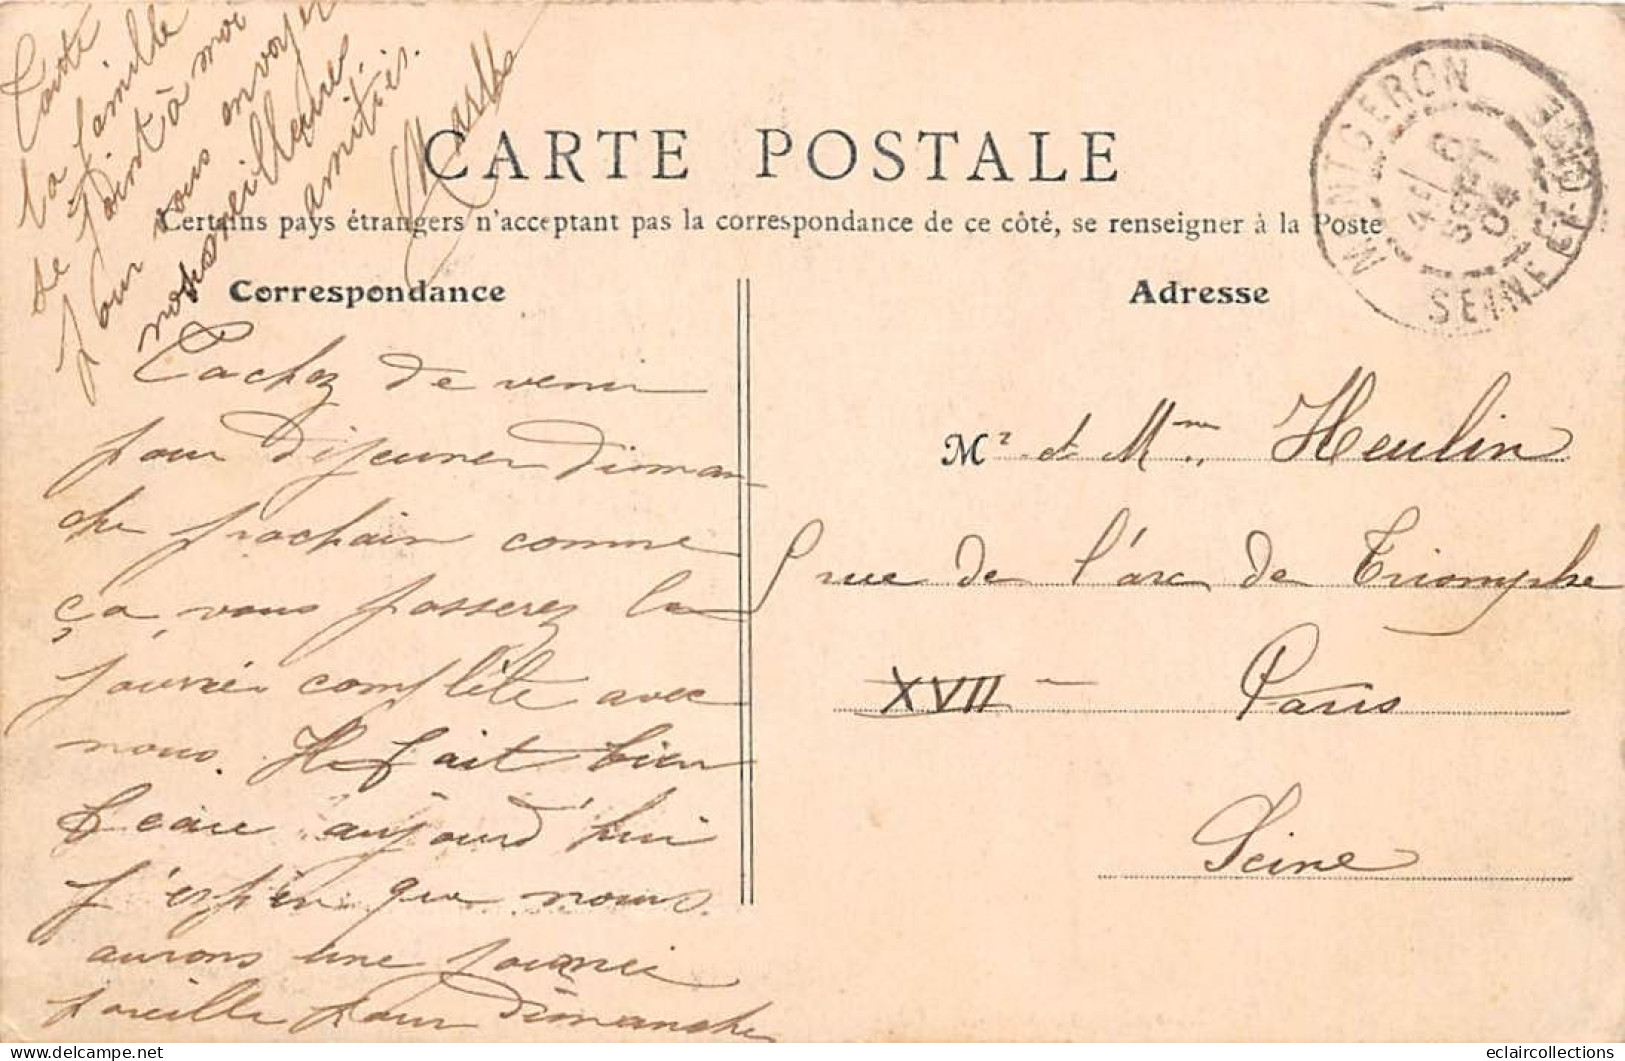 CARTE POSTALE
Certains pays étrangers n'acceptent pas la correspondance de ce côté, se renseigner à la Poste
Correspondance
Adresse
MONTGERON
SEPT
04
SEINE ET OISE
Cachez de venir
pour déjeuner diman-
che prochain comme
ça, vous passerez la
journée complète avec
nous. Il fait bien
beau aujourd'hui
j'espère que nous
aurons une journée
pareille pour Dimanche
Toute
la famille
se joint à moi
pour vous envoyer
nos meilleures
amitiés.
Mr et Mme Heulin
rue de l'arc de Triomphe
XVII
Paris
Seine
eclaircollections
delcampe.net